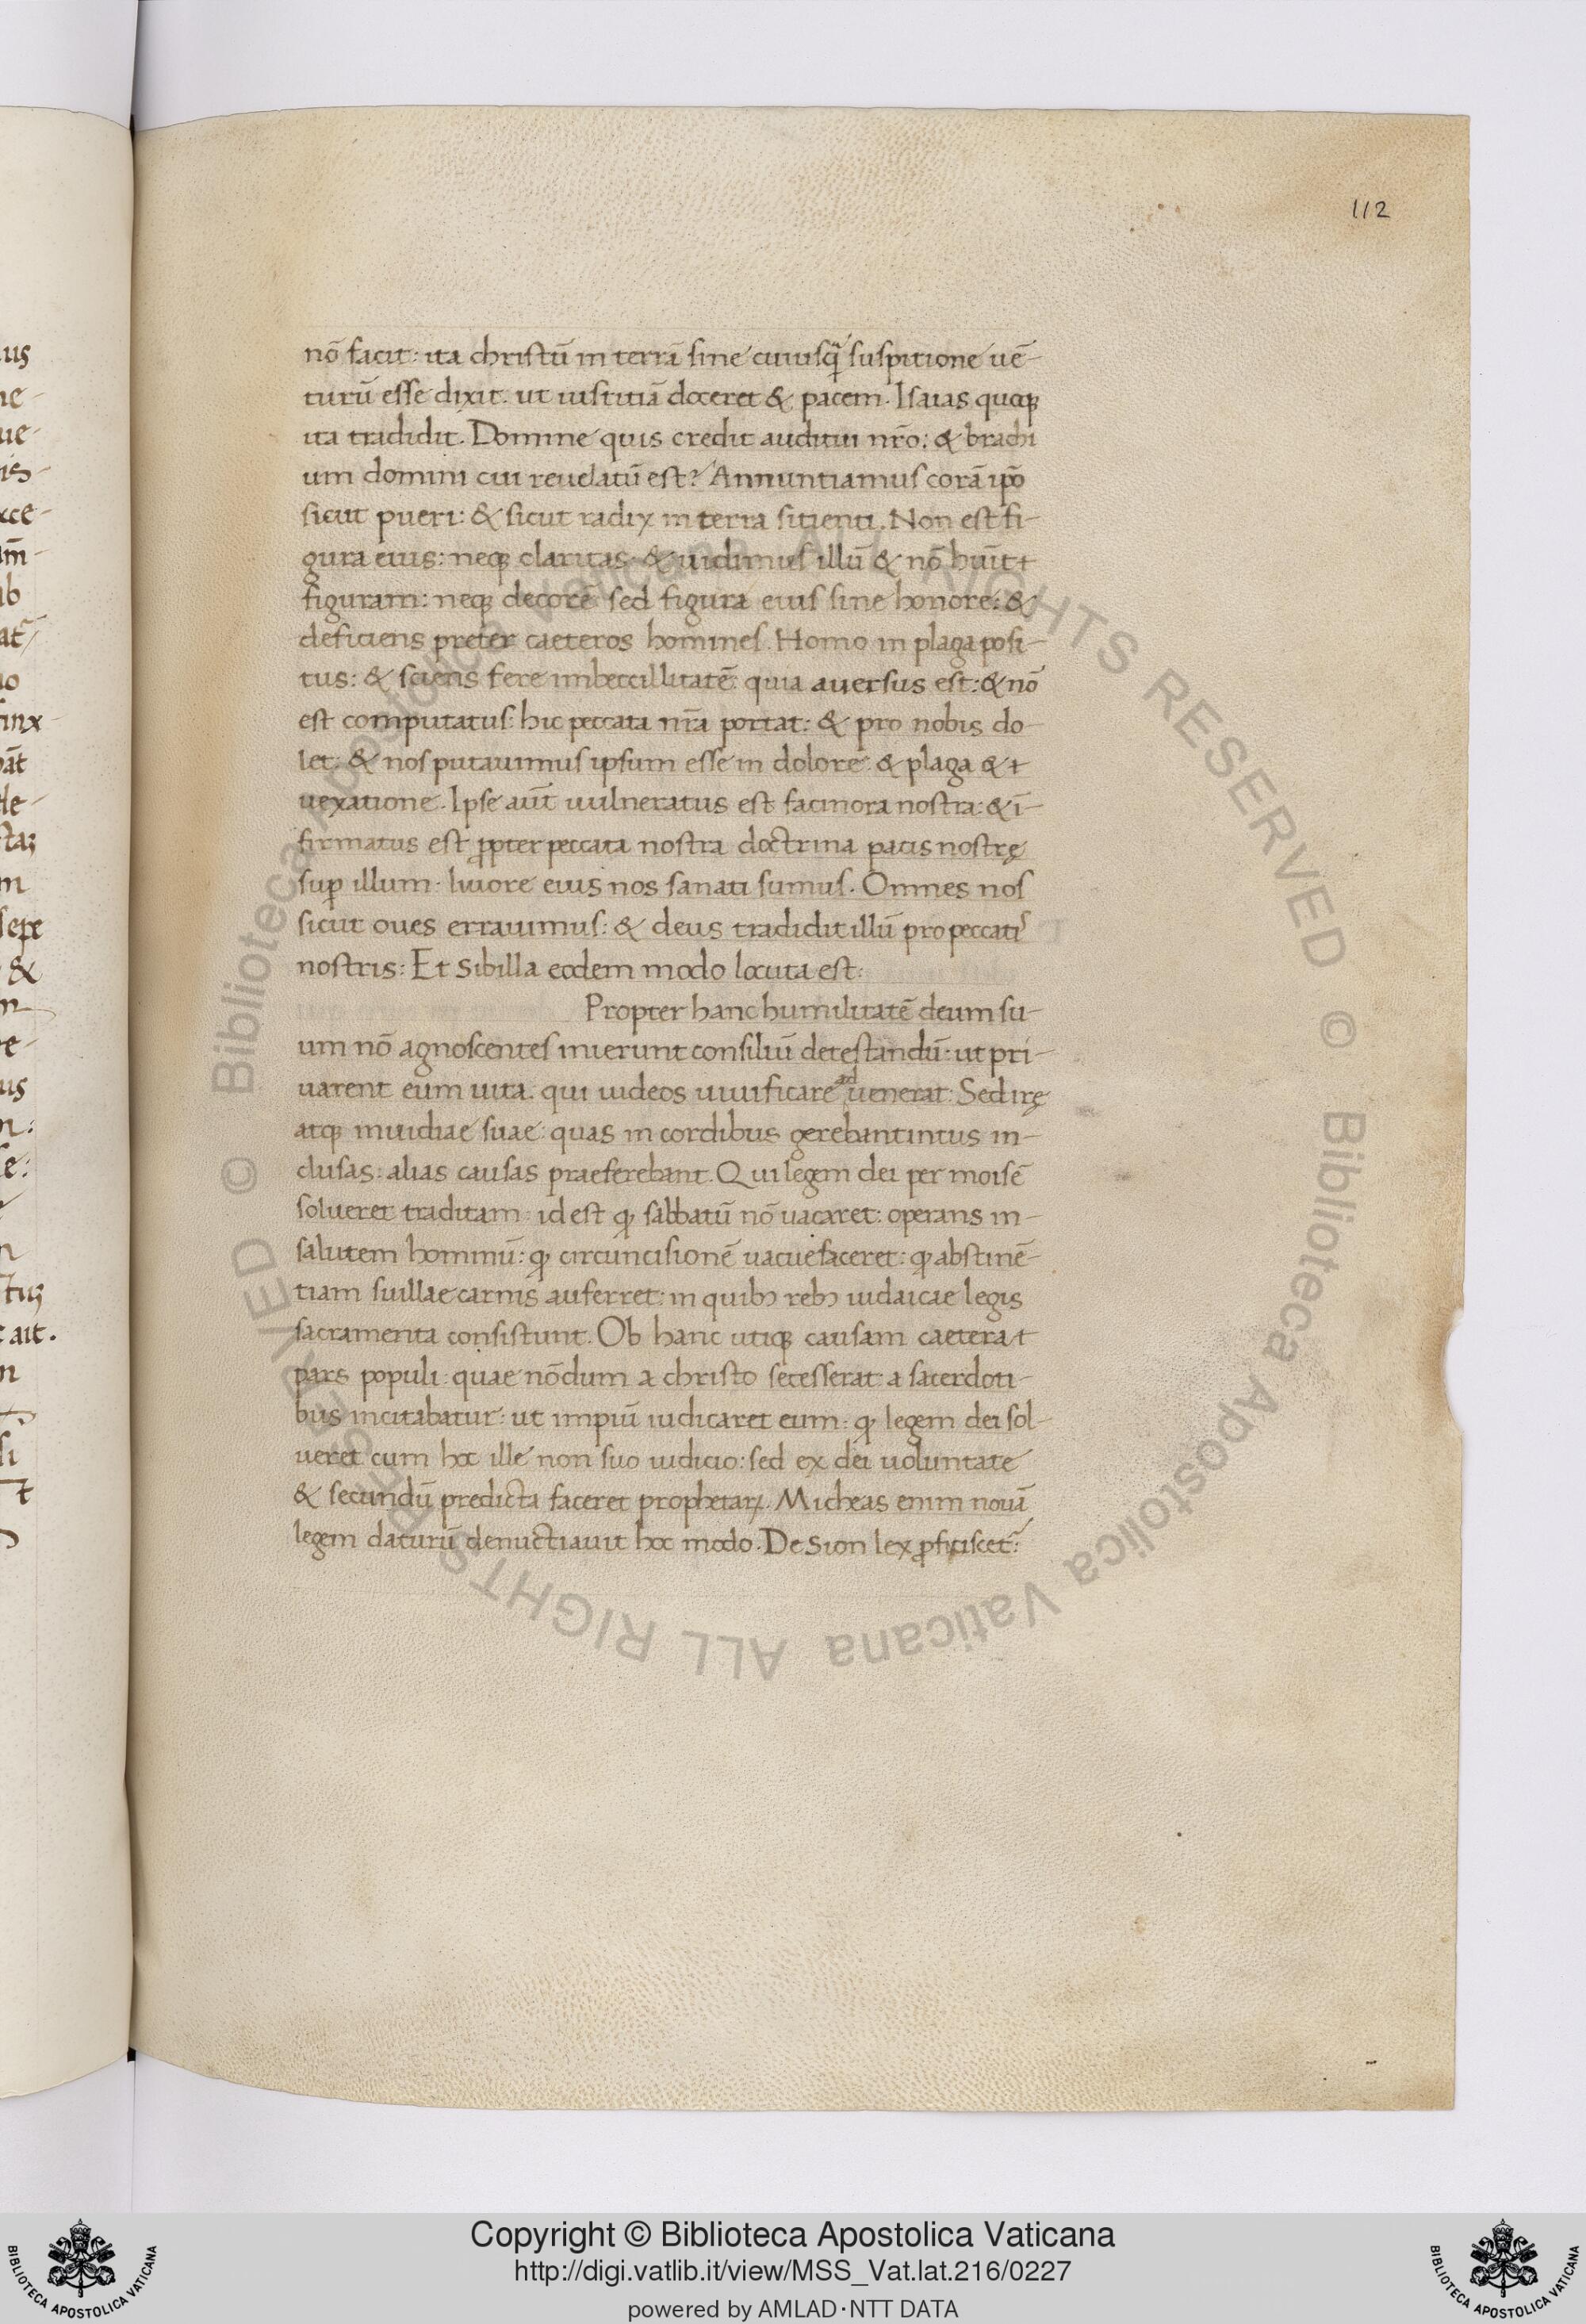 112
nō facit: ita christū in terrā sine cuiusq̄ suspitione uē-
turū esse dixit. ut iustitiā doceret & pacem. Isaias quoqꝫ
ita tradidit. Domine quis credit auditui nr̄o: & brachi
um domini cui reuelatū est? Annuntiamus corā ip̄o
sicut pueri: & sicut radix in terra sitienti. Non est fi-
gura eius: neqꝫ claritas. & uidimus illū & nō
figuram: neqꝫ decorē. sed figura eius sine honore: &
deficiens preter caeteros homines. Homo in plaga posi-
tus: & sciens fere imbecillitatē: quia auersus est: & nō
est computatus: hic peccata nr̄a portat: & pro nobis do-
let: & nos putauimus ipsum esse in dolore & plaga &
uexatione. Ipse aūt uulneratus est facinora nostra: & ī-
firmatus est ꝓpter peccata nostra doctrina pacis nostrę
suꝑ illum: liuore eius nos sanati sumus. Omnes nos
sicut oues errauimus: & deus tradidit illū pro peccatis
nostris: Et Sibilla eodem modo locuta est:
Propter hanc humilitatē deum su-
um nō agnoscentes inierunt consiliū detestandū: ut pri-
uarent eum uita. qui iudeos uiuificare aduenerat: Sed irę
atqꝫ inuidiae suae: quas in cordibus gerebant intus in-
clusas: alias causas praeferebant. Qui legem dei per moisē
solueret traditam: id est ꝙ sabbatū nō uacaret: operans in-
salutem hominū: ꝙ circuncisionē uacuefaceret: ꝙ abstinē-
tiam suillae carnis auferret: in quibꝫ rebꝫ iudaicae legis
sacramenta consistunt. Ob hanc utiqꝫ causam caetera
pars populi: quae nōdum a christo secesserat: a sacerdoti-
bus incitabatur: ut impiū iudicaret eum: ꝙ legem dei sol-
ueret cum hoc ille non suo iudicio: sed ex dei uoluntate
& secundū predicta faceret prophetaꝝ. Micheas enim nouā
legem daturū denuctiauit hoc modo. De Sion lex ꝓficiscet᷑:
Copyright © Biblioteca Apostolica Vaticana
http://digi.vatlib.it/view/MSS_Vat.lat.216/0227
powered by AMLAD·NTT DATA